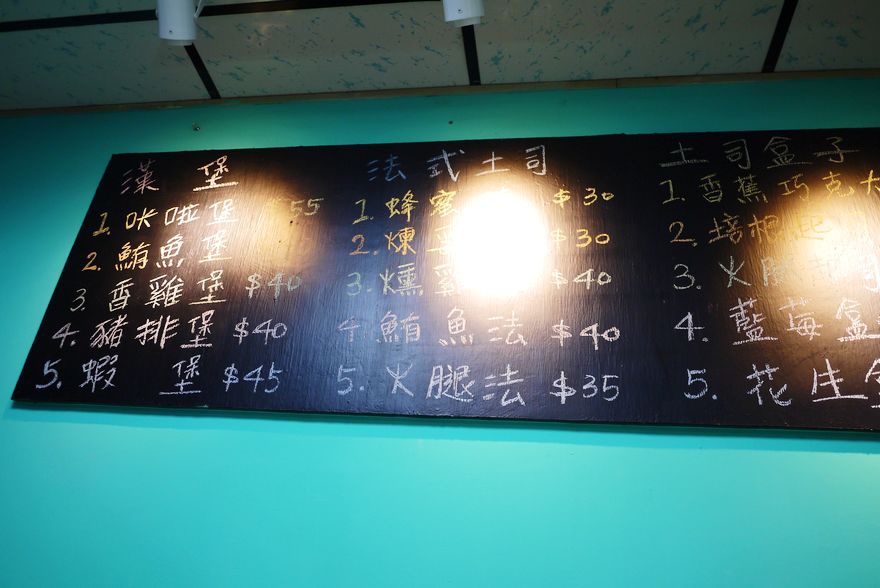 漢 堡
1. 咔啦堡 $55
2. 鮪魚堡
3. 香雞堡 $40
4. 豬排堡 $40
5. 蝦 堡 $45
法式土司
1. 蜂蜜 $30
2. 煉 $30
3. 燻雞 $40
4. 鮪魚法 $40
5. 火腿法 $35
土司盒子
1. 香蕉巧克
2. 培根起
3. 火腿
4. 藍莓盒
5. 花生